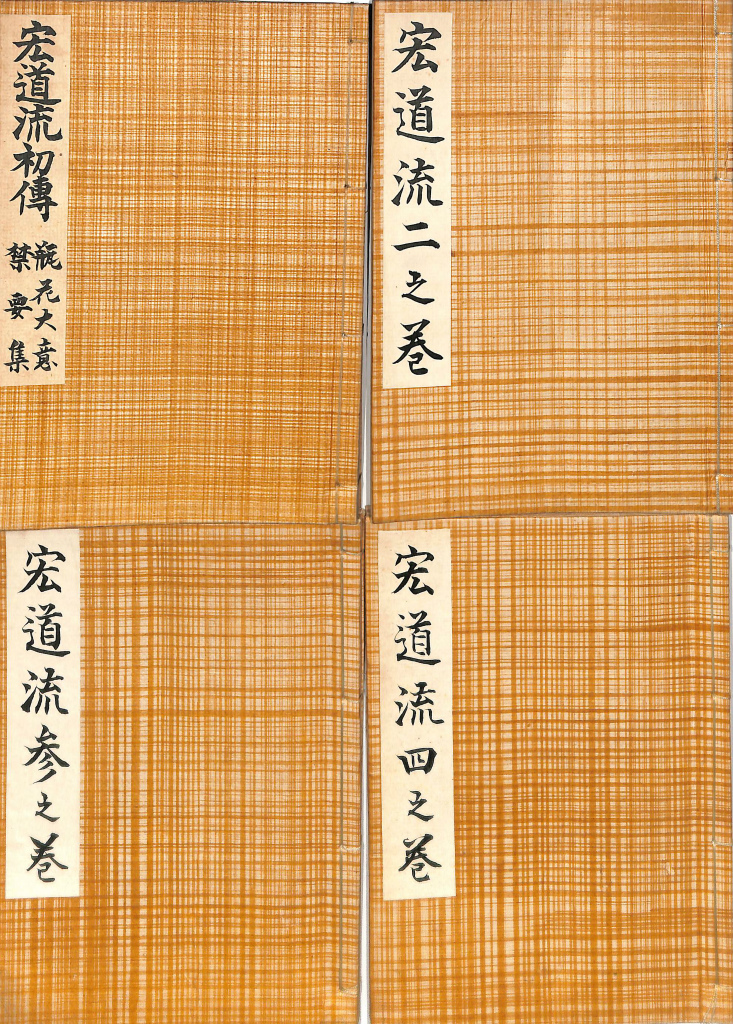 宏道流初傳
瓶花大意
禁要集
宏道流二之巻
宏道流参之巻
宏道流四之巻